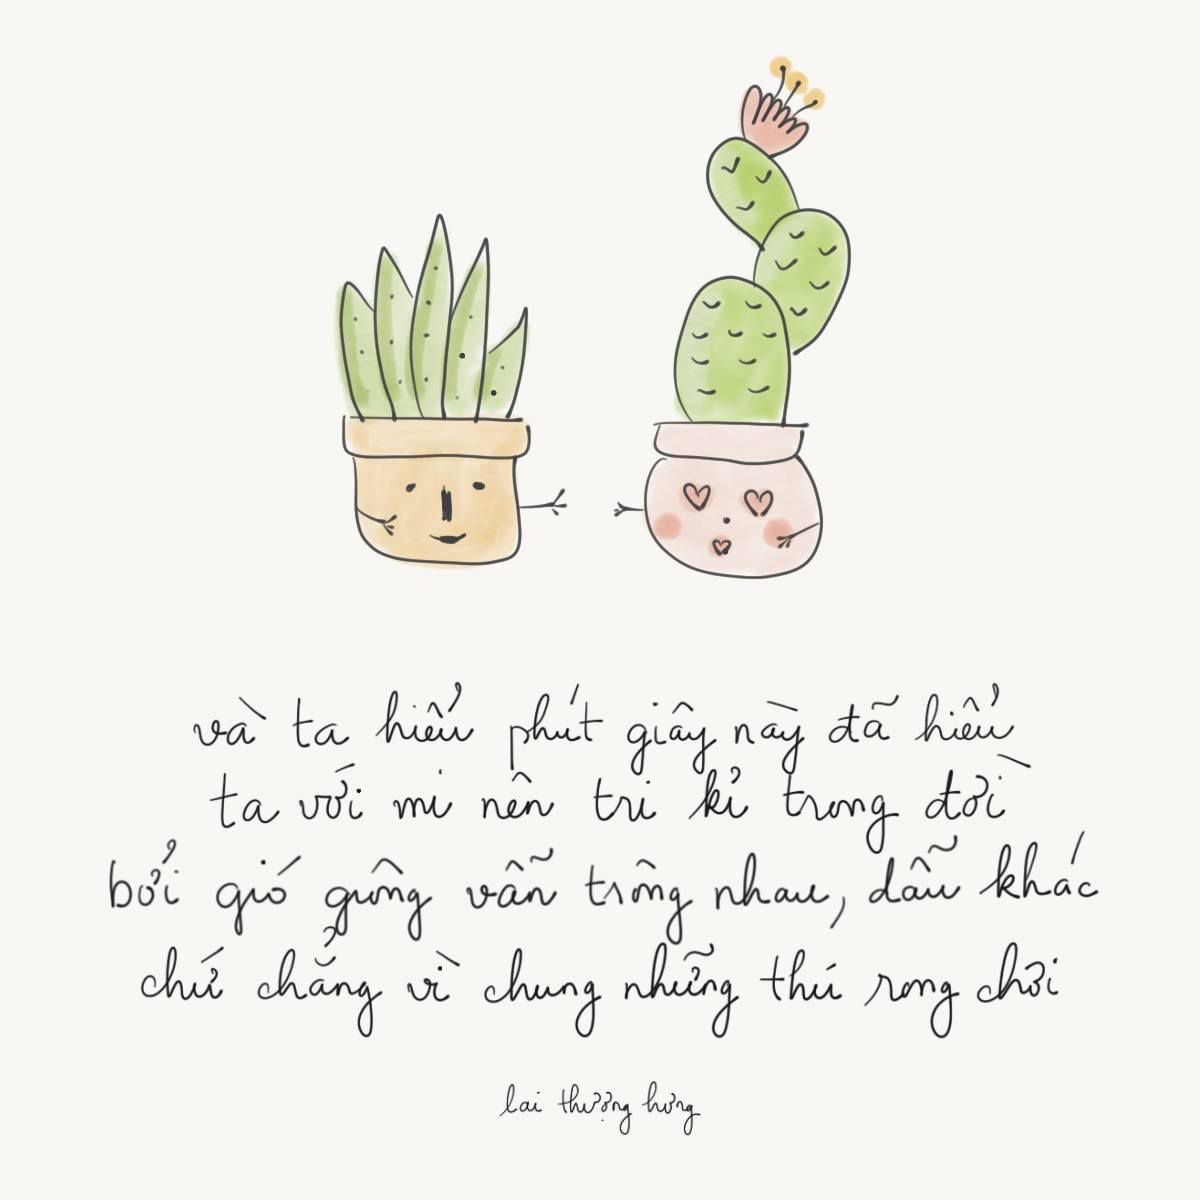 và ta hiểu phút giây này đã hiểu
ta với mi nên tri kỉ trong đời
bởi gió gương vẫn trông nhau, dẫu khác
chứ chẳng vì chung những thú rong chơi
lai thượng hưng